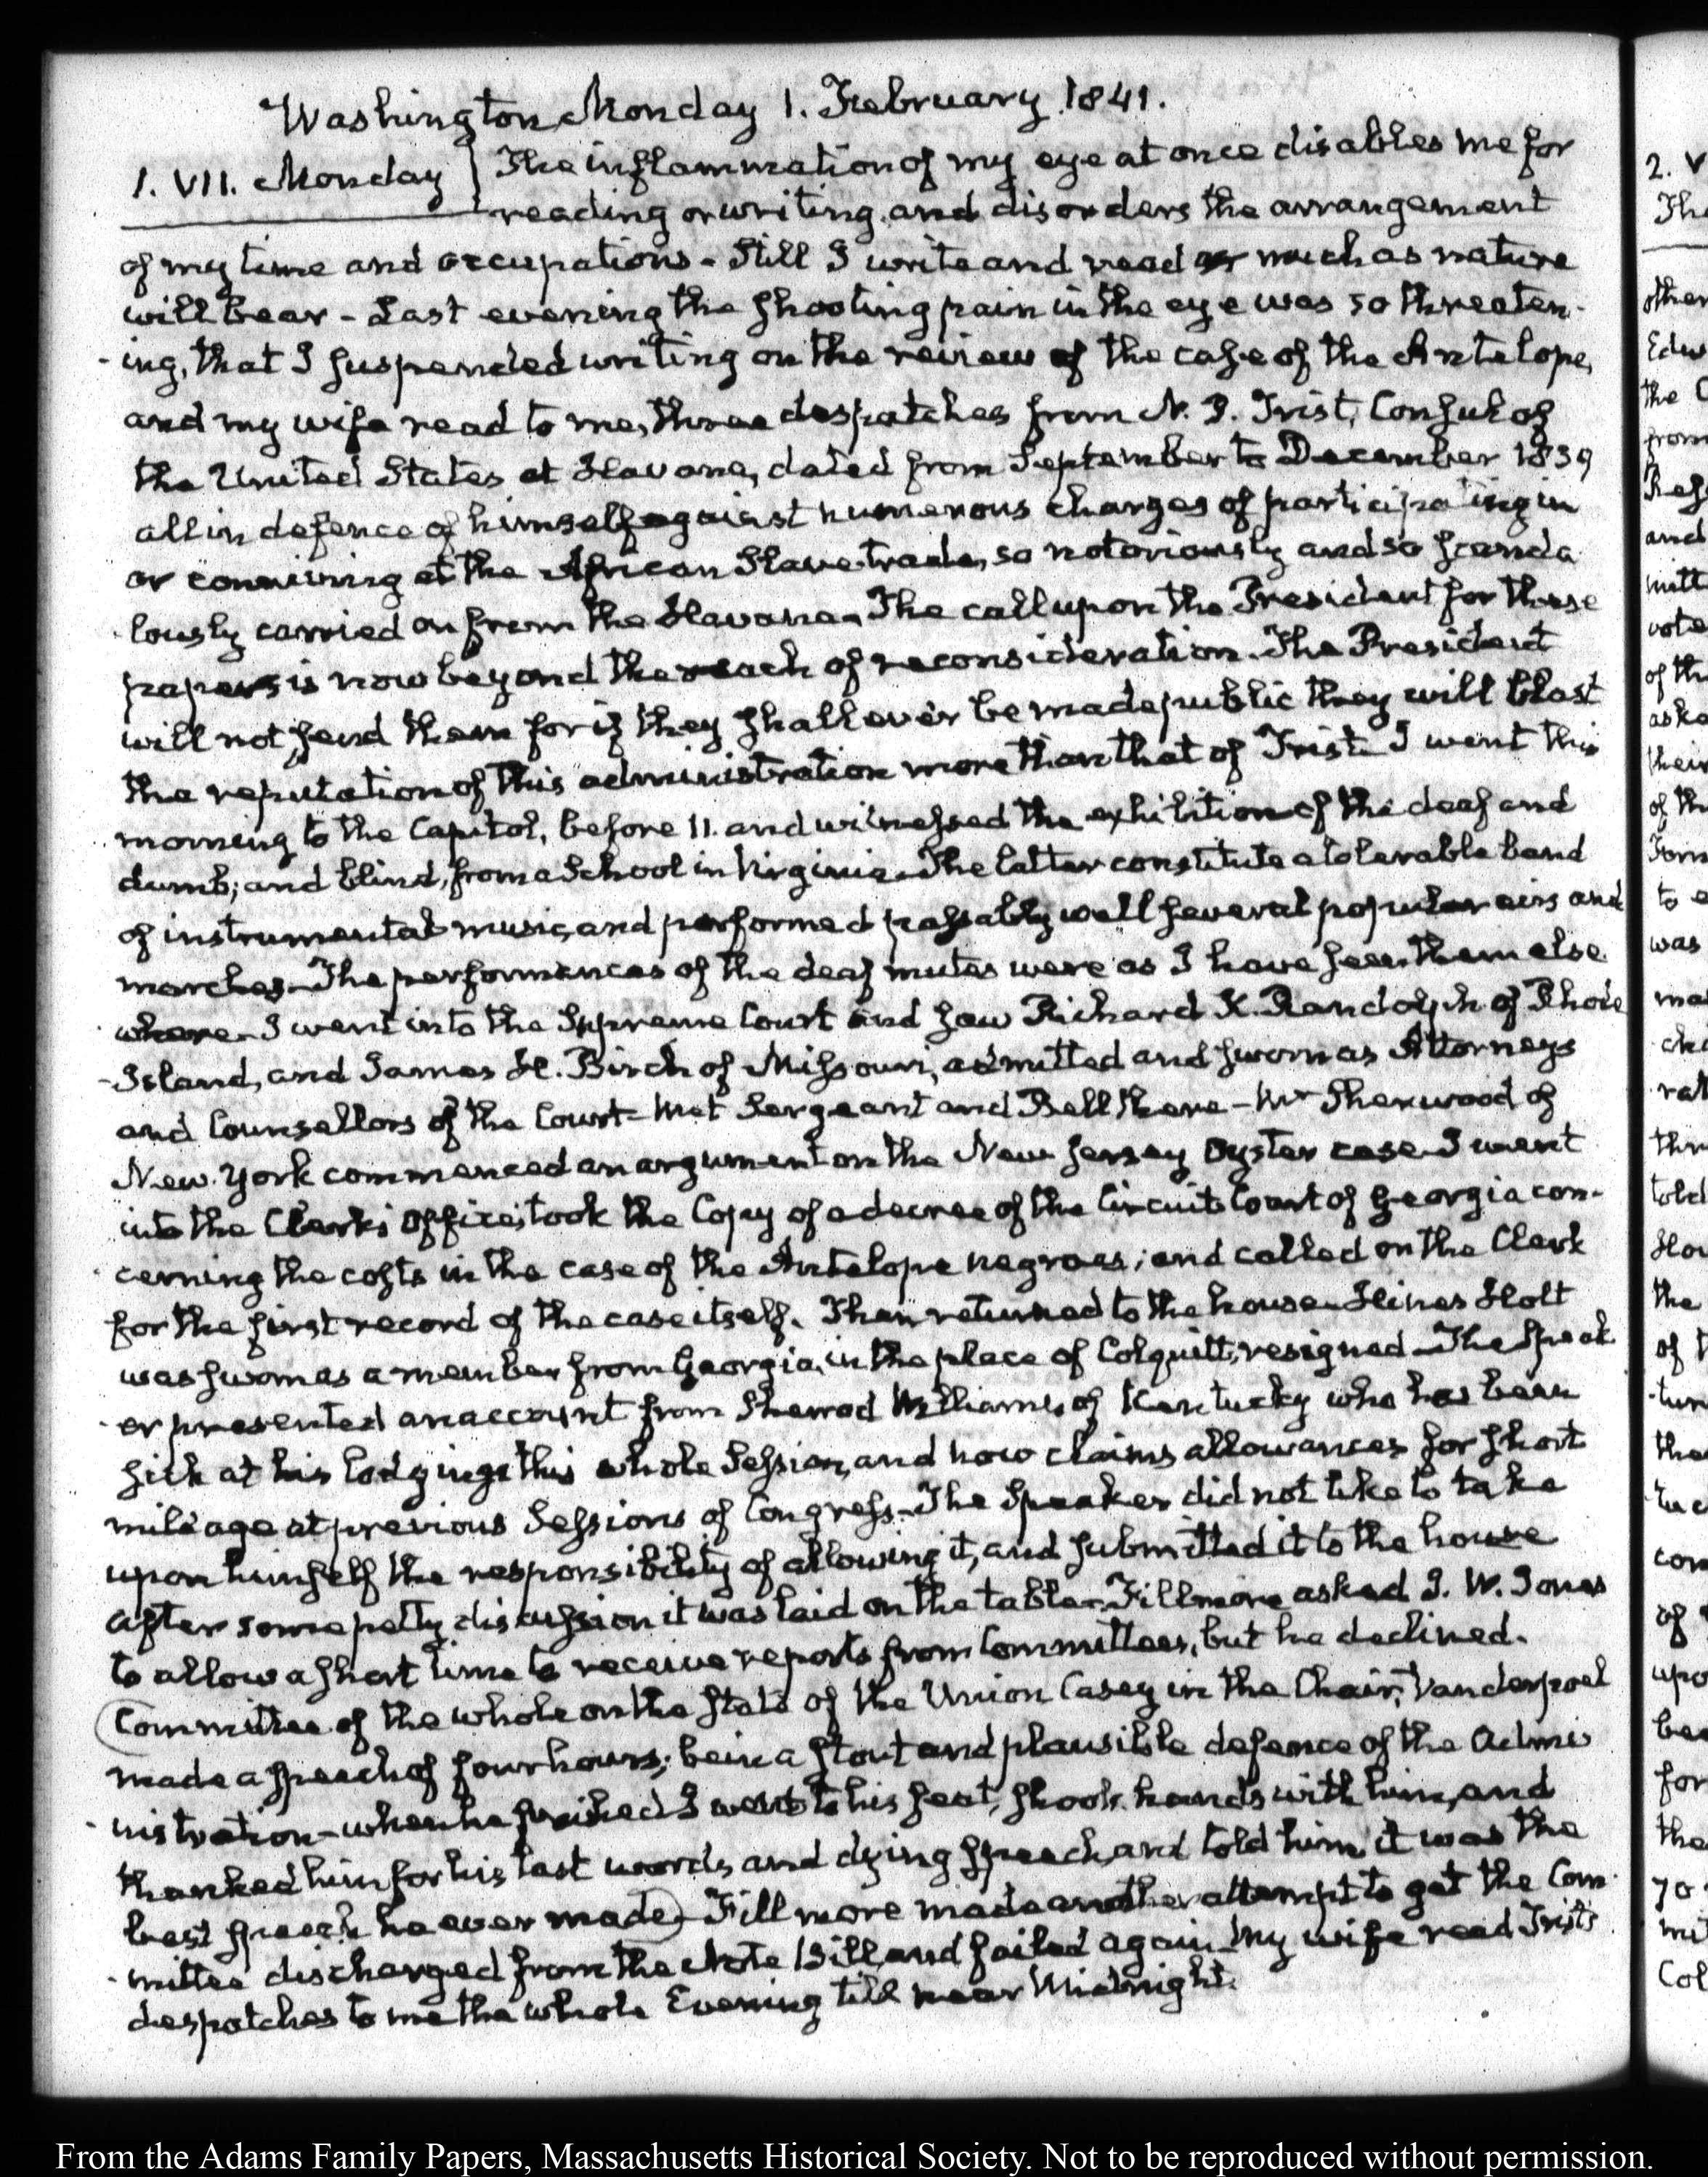 Washington Monday 1. February 1841.
1. VII. Monday } The inflammation of my eye at once disables me for
reading or writing, and disorders the arrangement
of my time and occupations - Still I write and read as much as nature
will bear - Last evening the shooting pain in the eye was so threaten-
-ing, that I suspended writing on the review of the case of the Antelope,
and my wife read to me, three despatches from N. P. Trist, Consul of
the United States at Havana, dated from September to December 1839
all in defence of himself against numerous charges of participating in
or conniving at the African Slave-trade, so notoriously and so scanda
-lously carried on from the Havana - The call upon the President for these
papers is now beyond the reach of reconsideration - The President
will not send them for if they shall ever be made public they will blast
the reputation of this administration more than that of Trist - I went this
morning to the Capitol, before 11. and witnessed the exhibition of the deaf and
dumb; and blind, from a School in Virginia - The latter constitute a tolerable band
of instrumental music, and performed passably well several popular airs and
marches - The performances of the deaf mutes were as I have seen them else
where - I went into the Supreme Court and saw Richard K. Randolph of Rhode
-Island, and James H. Birch of Missouri, admitted and sworn as Attorneys
and Counsellors of the Court - Met Sergeant and Bell there - Mr Sherwood of
New-York commenced an argument on the New Jersey Oyster case - I went
into the Clerk's Office, took the Copy of a decree of the Circuit Court of Georgia con-
cerning the costs in the case of the Antelope negroes; and called on the Clerk
for the first record of the case itself. Then returned to the house - Hines Holt
was sworn as a member from Georgia, in the place of Colquitt, resigned - The Speak
-er presented an account from Sherrod Williams, of Kentucky who has been
sick at his lodgings this whole Session, and now claims allowances for short
mileage at previous Sessions of Congress - The Speaker did not like to take
upon himself the responsibility of allowing it, and submitted it to the house
after some petty discussion it was laid on the table - Fillmore asked J. W. Jones
to allow a short time to receive reports from Committees, but he declined.
(Committee of the whole on the State of the Union Casey in the Chair, Vanderpoel
made a speech of four hours; being a stout and plausible defence of the Admi
-nistration - when he finished I went to his seat, shook hands with him, and
thanked him for his last words, and dying speech, and told him it was the
best speech he ever made) - Fillmore made another attempt to get the Com-
-mittee discharged from the Note Bill, and failed again - My wife read Trist's
despatches to me the whole Evening till near Midnight.
2. V
The
other
Edw
the C
from
and
mitt
vote
of th
aske
their
of th
to e
was
the
of
that
con
of
upo
bee
for
the
mi
Col
From the Adams Family Papers, Massachusetts Historical Society. Not to be reproduced without permission.